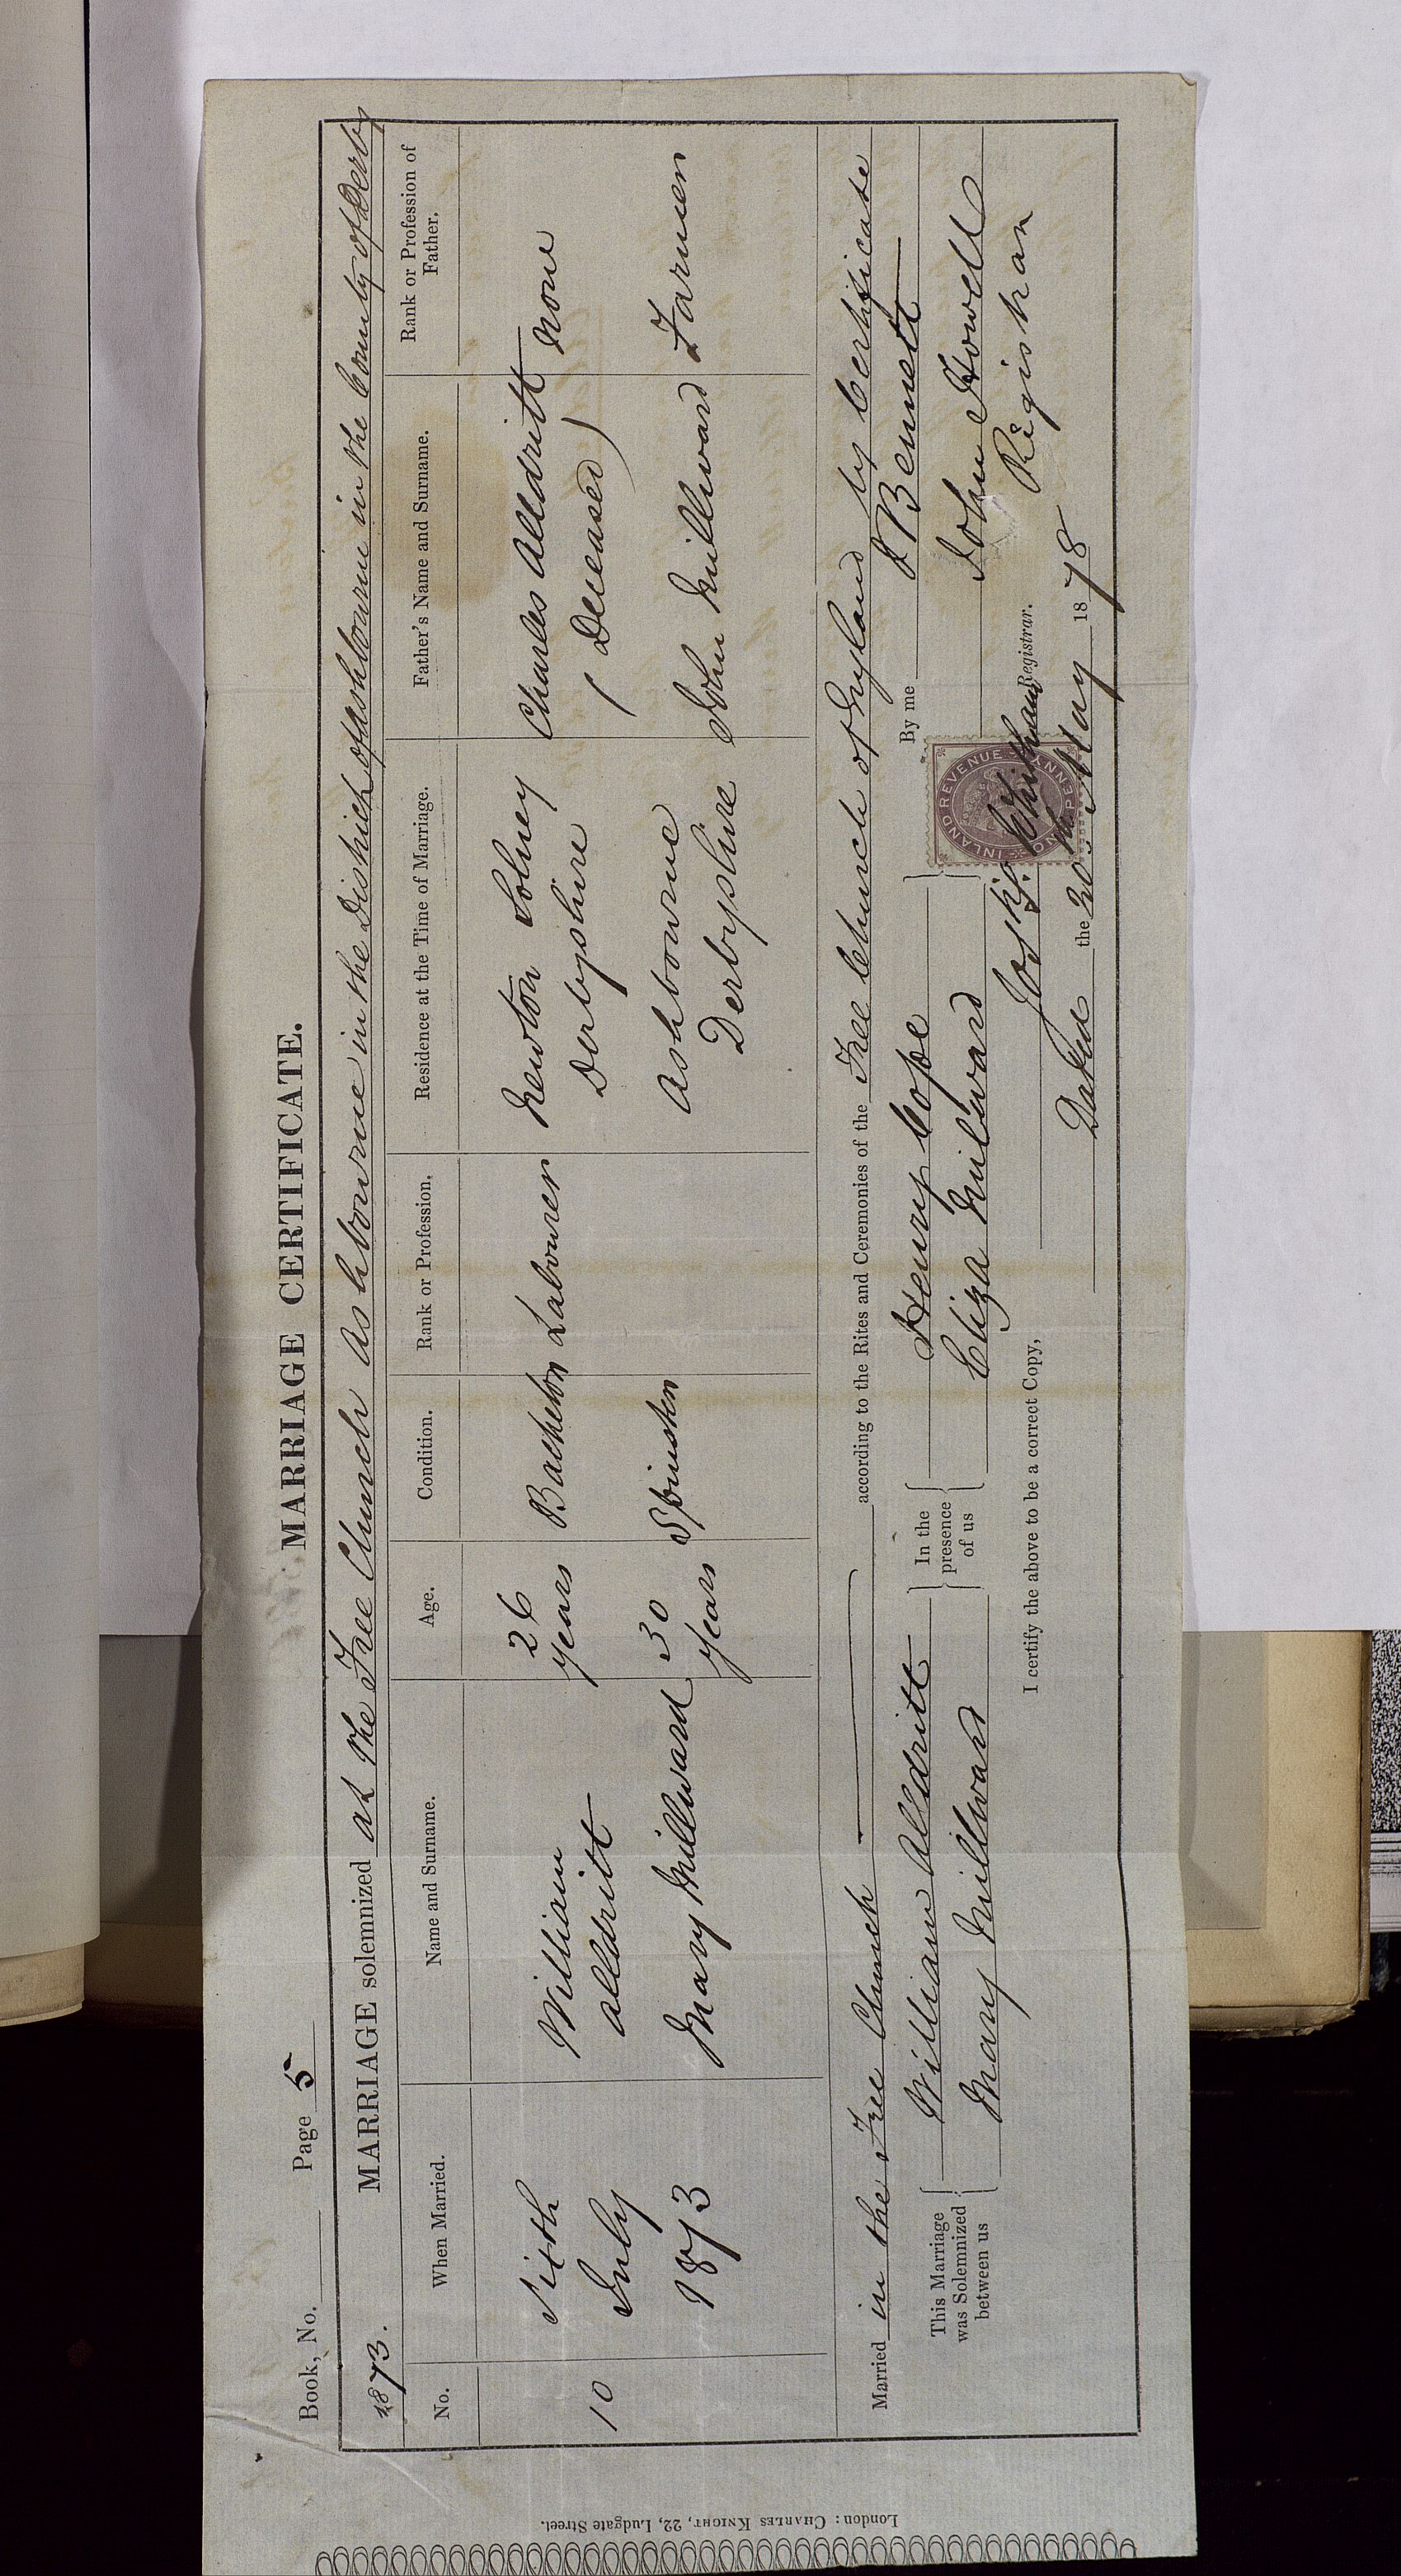 MARRIAGE CERTIFICATE.
Book, No. Page 5
1873. MARRIAGE solemnized at the Free Church Ashbourne in the District of Ashbourne in the County of Derby
No. When Married. Name and Surname. Age. Condition. Rank or Profession. Residence at the Time of Marriage. Father's Name and Surname. Rank or Profession of Father.
10 Sixth July 1873
William Alldritt 26 years Bachelor Labourer Newton Solney Derbyshire Charles Alldritt (Deceased) none
Mary Millward 30 years Spinster Ashbourne Derbyshire John Millward Farmer
Married in the Free Church according to the Rites and Ceremonies of the Free Church of England by Certificate
This Marriage was Solemnized between us
William Alldritt
Mary Millward
In the presence of us
Henry Cope
Eliza Milward
By me J Bennett
John Howell
Registrar
I certify the above to be a correct Copy,
Registrar.
Dated the 20th May 1878
INLAND REVENUE ONE PENNY
London: CHARLES KNIGHT, 22, Ludgate Street.